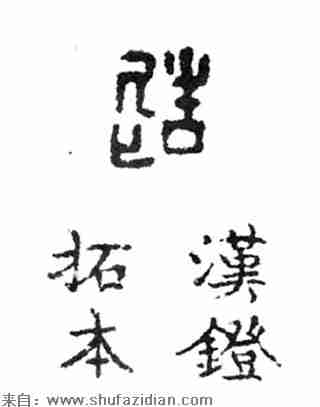 造
漢鐙
拓本
来自：www.shufazidian.com